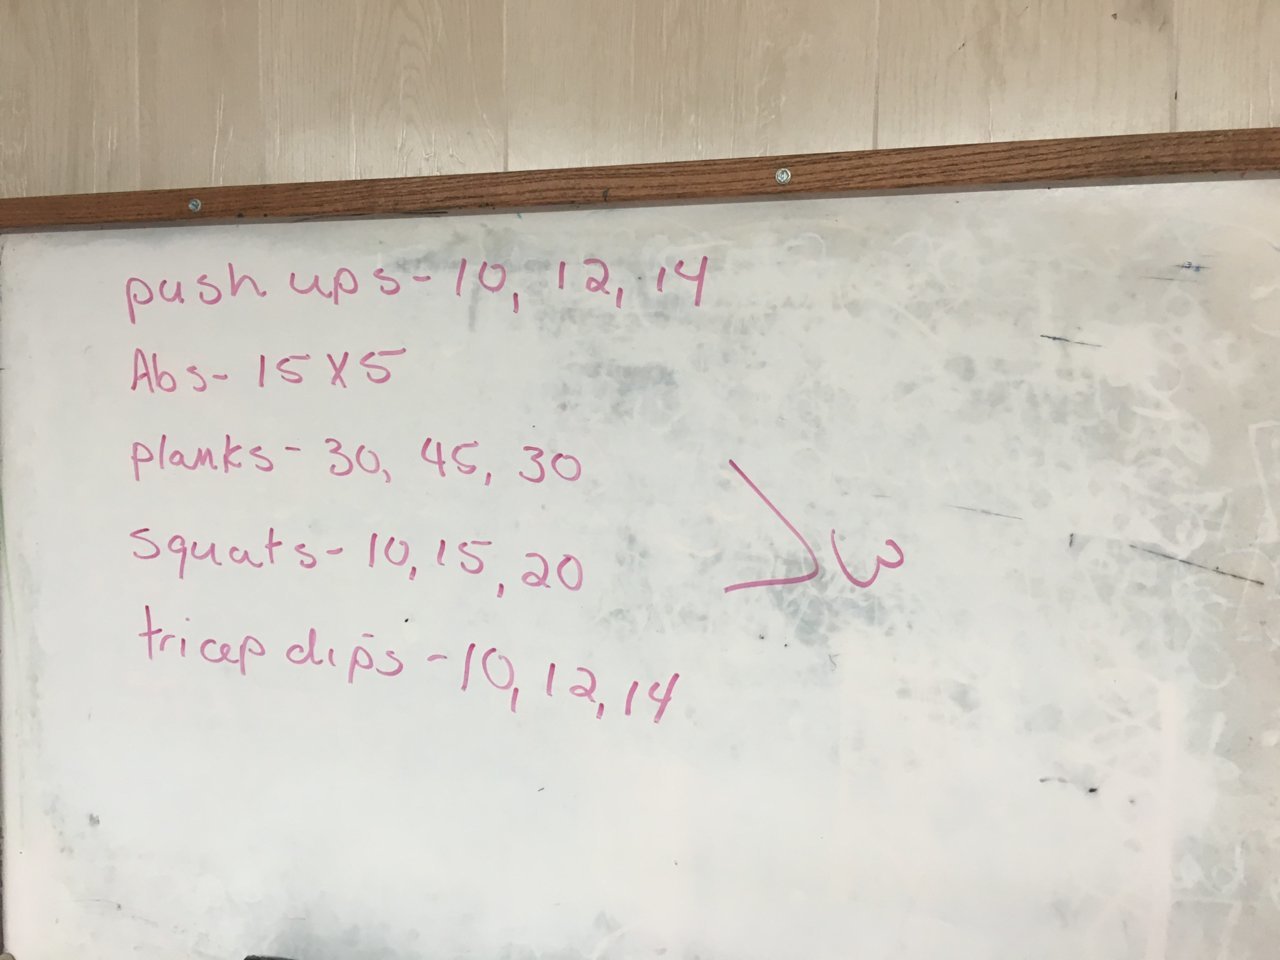 push ups - 10, 12, 14
Abs - 15 X 5
planks - 30, 45, 30
squats - 10, 15, 20
tricep dips - 10, 12, 14